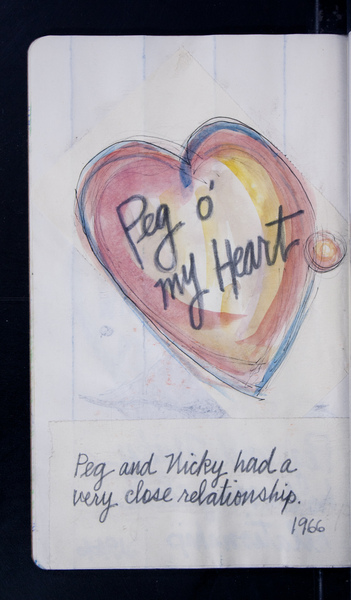 Peg o'
my Heart
Peg and Nicky had a
very close relationship.
1966